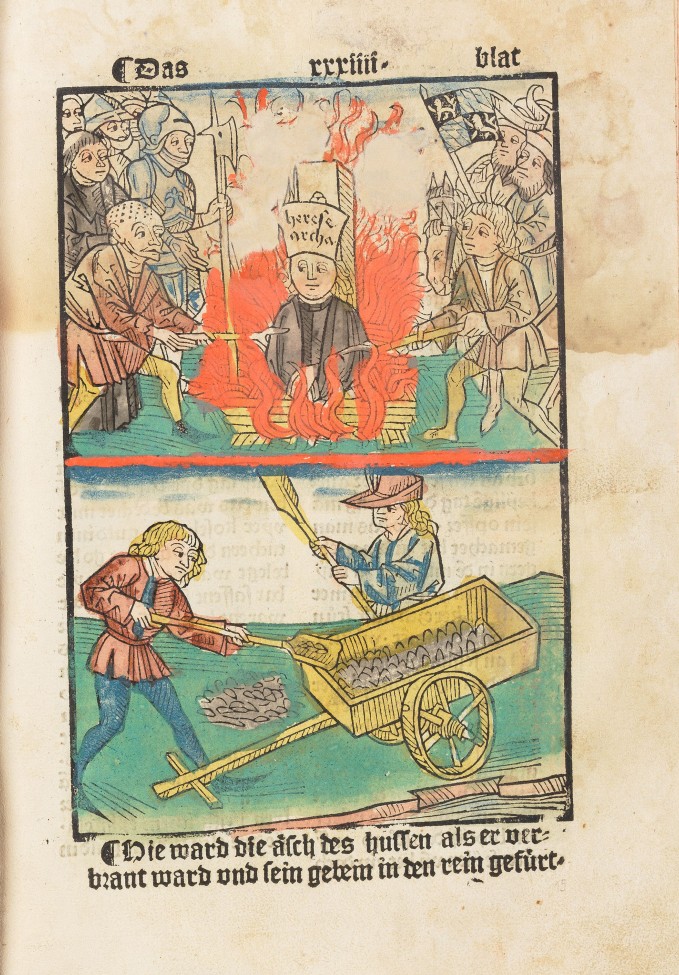 ¶Das xxxiiii· blat
herese
archa
¶Hie ward die äsch des hussen als er ver⸗
brant ward vnd sein gebein in den rein gefürt·